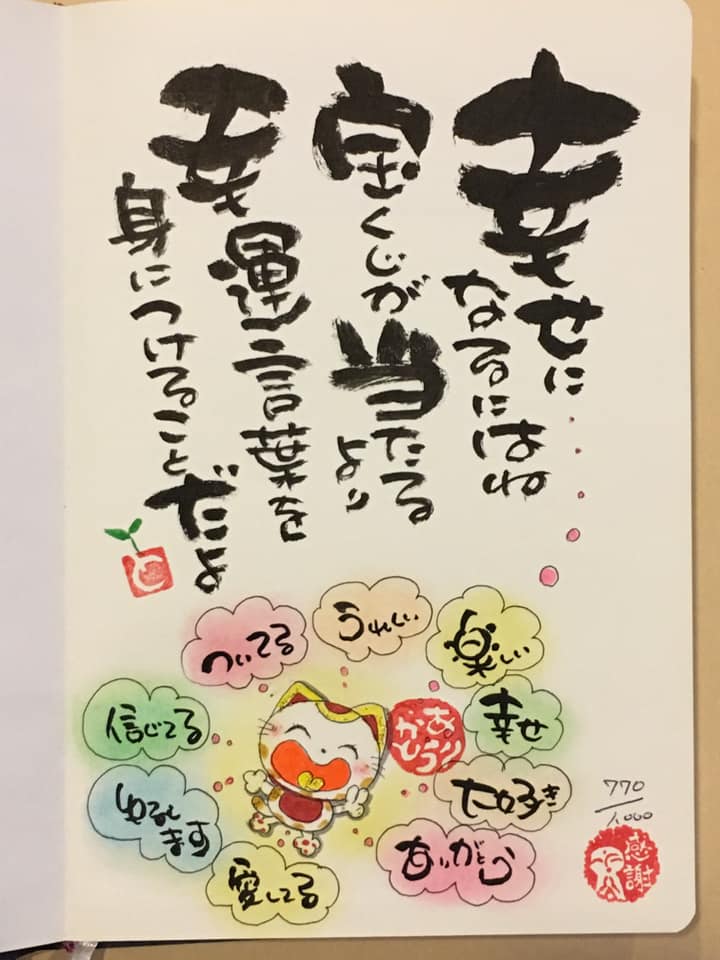 幸せに
なるにはね
宝くじが
当たる
より
幸運言葉を
身につけること
だよ
ついてる
うれしい
楽しい
信じてる
幸せ
ゆるし
ます
大好き
愛してる
ありがとう
ありがとう
770
1.000
感謝